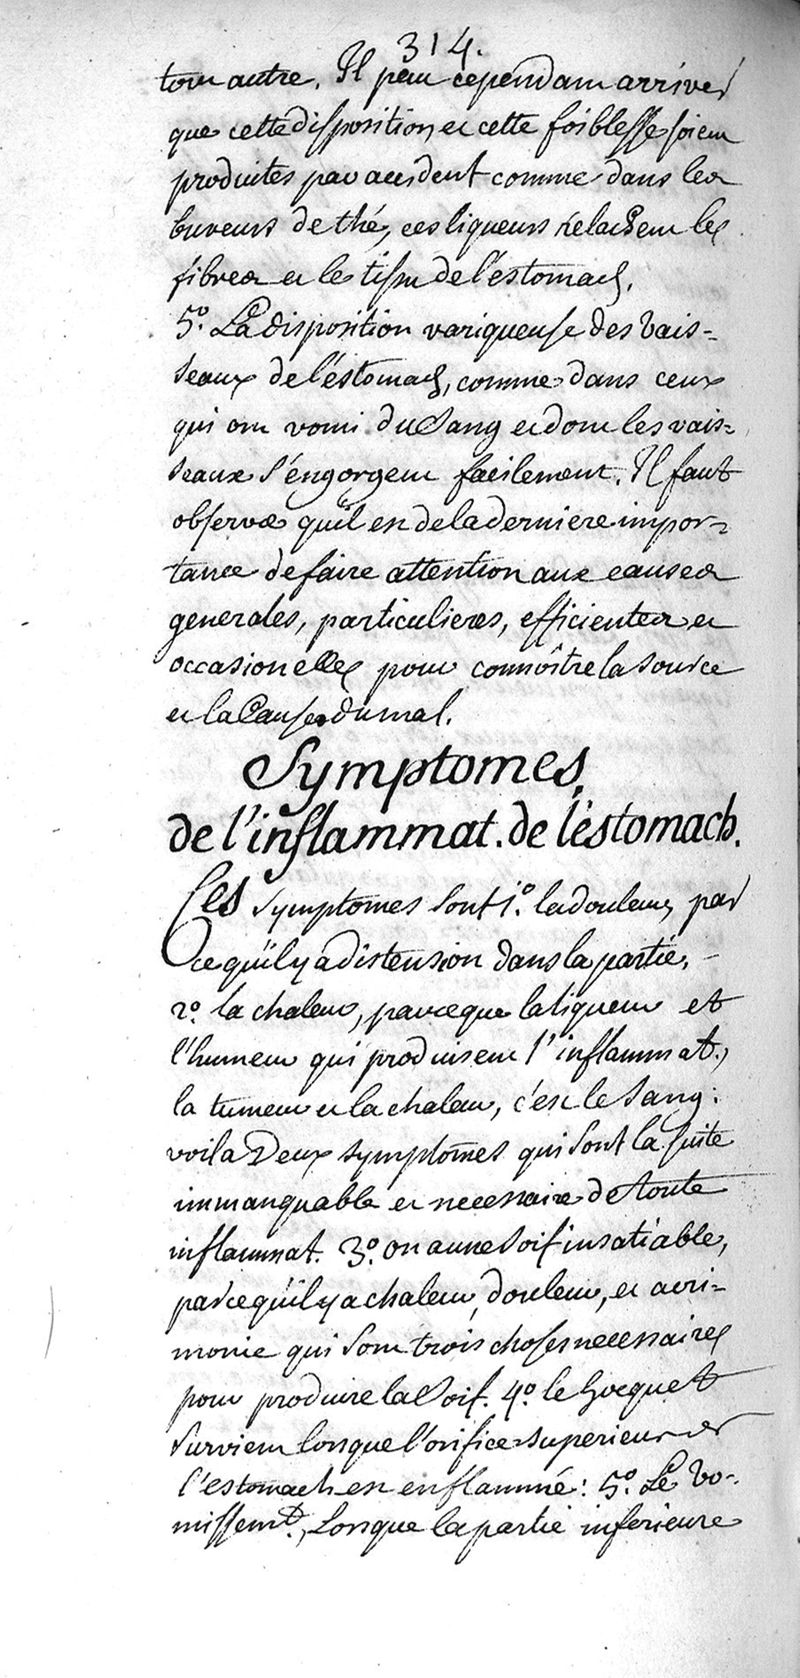 314.
tout autre. Il peut cependant arriver
que cette disposition et cette foiblesse soient
produites par accident comme dans les
buveurs de thé, ces liqueurs relachent les
fibres et le tissu de l'éstomach.
5º. La disposition variqueuse des vais=
seaux de l'éstomach, comme dans ceux
qui ont vomi du Sang et dont les vais=
seaux s'engorgent facilement. Il faut
observer qu'il est de la derniere impor=
tance de faire attention aux causes
generales, particulieres, efficientes et
occasionelles pour connoître la source
et la Cause du mal.
Symptomes
de l'inflammat. de l'éstomach.
Ces symptomes sont 1º. la douleur, par
ce qu'il y a distension dans la partie.
2º. la chaleur, parceque la liqueur et
l'humeur qui produisent l'inflammat.,
la tumeur et la chaleur, c'est le Sang:
voila Deux symptômes qui sont la suite
immanquable et necessaire de toute
inflammat. 3º. on a une soif insatiable,
parcequ'il y a chaleur, douleur, et acri=
monie qui sont trois choses necessaires
pour produire la Soif. 4º. le hocquet
survient lorsque l'orifice superieur de
l'estomach est enflammé: 5º. Le Vo=
missemt., Lorsque la partie inferieure